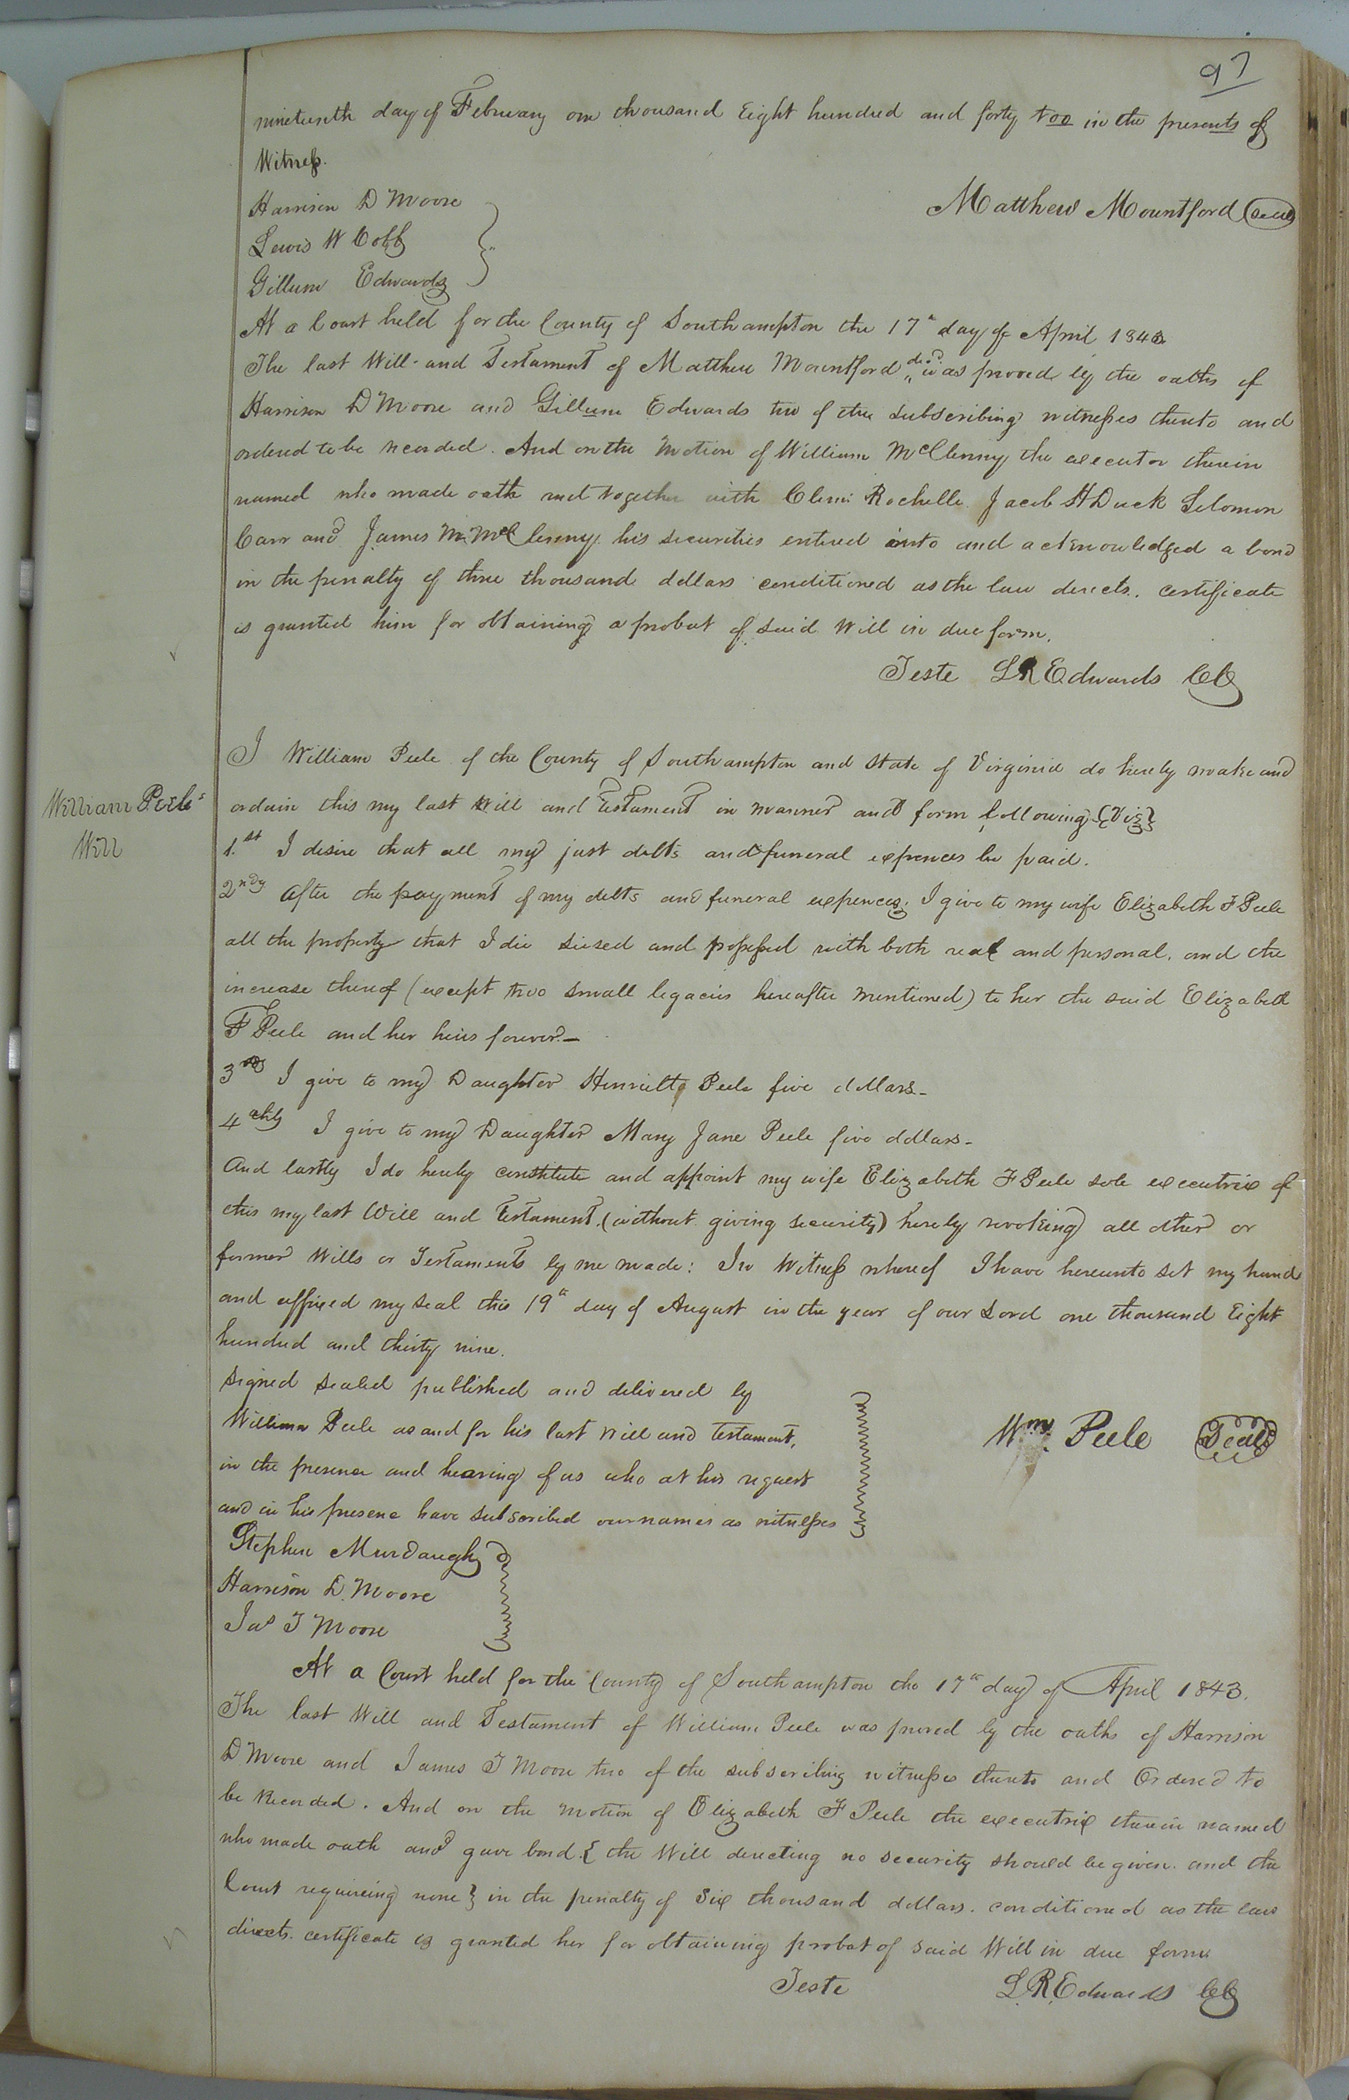 97
nineteenth day of February one thousand Eight hundred and forty too in the presents of
Witness.
Harrison D Moore
Matthew Mountford Seal
Lewis W Cobb
Gillum Edwards
At a Court held for the County of Southampton the 17th day of April 1843
The last Will and Testament of Matthew Mountford decd. was proved by the oaths of
Harrison D Moore and Gillum Edwards two of the subscribing witnesses thereto and
ordered to be recorded. And on the Motion of William McClenny the executor therein
named who made oath and together with Clemt Rochelle Jacob H Duck Solomon
Carr and James M McClenny his securities entered into and acknowledged a bond
in the penalty of three thousand dollars conditioned as the law directs. certificate
is granted him for obtaining a probat of said Will in due form.
Teste LR Edwards CC
I William Peele of the County of Southampton and State of Virginia do hereby make and
William Peele's
Will
ordain this my last Will and Testament in manner and form following {Viz}
1.st I desire that all my just debts and funeral expences be paid.
2ndy After the payment of my debts and funeral expences; I give to my wife Elizabeth F Peele
all the property that I die siesed and possessed with both real and personal. and the
increase thereof (except two small legacies hereafter mentioned) to her the said Elizabeth
F Peele and her heirs forever.—
3rd I give to my Daughter Henrietta Peele five dollars—
4thly I give to my Daughter Mary Jane Peele five dollars—
And lastly I do hereby constitute and appoint my wife Elizabeth F Peele sole executrix of
this my last Will and Testament. (without giving security) hereby revoking all other or
former Wills or Testaments by me made: In Witness whereof I have hereunto set my hand
and affixed my seal this 19th day of August in the year of our Lord one thousand Eight
hundred and thirty nine.
Signed sealed published and delivered by
William Peele as and for his last will and testament,
Wm Peele Seal
in the presence and hearing of us who at his request
and in his presence have subscribed our names as witnesses
Stephen Murdaugh
Harrison D. Moore
Jas T Moore
At a Court held for the County of Southampton the 17th day of April 1843.
The last Will and Testament of William Peele was proved by the oaths of Harrison
D Moore and James T Moore two of the subscribing witnesses thereto and Ordered to
be Recorded. And on the motion of Elizabeth F Peele the executrix therein named
who made oath and gave bond { the Will directing no security should be given. and the
Court requireing none } in the penalty of Six thousand dollars. conditioned as the law
directs. certificate is granted her for obtaining probat of said Will in due form
Teste L.R. Edwards CC